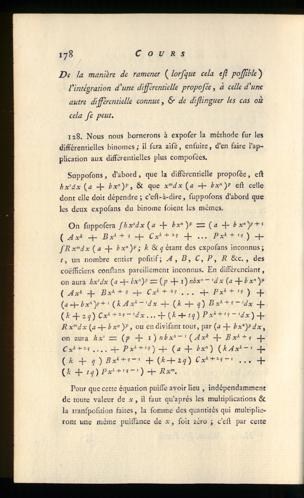 178 COURS
De la manière de ramener (lorsque cela est possible)
l'intégration d'une différentielle proposée, à celle d'une
autre différentielle connue, & de distinguer les cas où
cela se peut.
128. Nous nous bornerons à exposer la méthode sur les
différentielles binomes; il sera aisé, ensuite, d'en faire l'ap-
plication aux différentielles plus composées.
Supposons, d'abord, que la différentielle proposée, est
hxˢdx (a + bxⁿ)ᵖ, & que xᵐdx (a + bxⁿ)ᵖ est celle
dont elle doit dépendre; c'est-à-dire, supposons d'abord que
les deux exposans du binome soient les mêmes.
On supposera ∫hxˢdx (a + bxⁿ)ᵖ = (a + bxⁿ)ᵖ⁺¹
(Axᵏ + Bxᵏ⁺q + Cxᵏ⁺²q + ... Pxᵏ⁺ᵗq) +
∫Rxᵐdx (a + bxⁿ)ᵖ; k & q étant des exposans inconnus;
t, un nombre entier positif; A, B, C, P, R &c., des
coëfficiens constans pareillement inconnus. En différenciant,
on aura hxˢdx (a + bxⁿ)ᵖ = (p + 1) nbxⁿ⁻¹dx (a + bxⁿ)ᵖ
(Axᵏ + Bxᵏ⁺q + Cxᵏ⁺²q .... + Pxᵏ⁺ᵗq) +
(a + bxⁿ)ᵖ⁺¹ (kAxᵏ⁻¹dx + (k + q) Bxᵏ⁺q⁻¹dx +
(k + 2q) Cxᵏ⁺²q⁻¹dx ... + (k + tq) Pxᵏ⁺ᵗq⁻¹dx) +
Rxᵐdx (a + bxⁿ)ᵖ, ou en divisant tout, par (a + bxⁿ)ᵖdx,
on aura hxˢ = (p + 1) nbxⁿ⁻¹ (Axᵏ + Bxᵏ⁺q +
Cxᵏ⁺²q .... + Pxᵏ⁺ᵗq) + (a + bxⁿ) (kAxᵏ⁻¹ +
(k + q) Bxᵏ⁺q⁻¹ + (k + 2q) Cxᵏ⁺²q⁻¹ ... +
(k + tq) Pxᵏ⁺ᵗq⁻¹) + Rxᵐ.
Pour que cette équation puisse avoir lieu, indépendamment
de toute valeur de x, il faut qu'après les multiplications &
la transposition faites, la somme des quantités qui multiplie-
rons une même puissance de x, soit zéro; c'est par cette